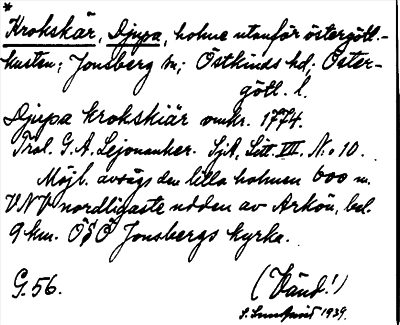 *
Krokskär, Djupa, holme utanför östergöt.-
kusten; Jonsberg sn; Östkinds hd; Öster-
götl. l.
Djupa krokskiär omkr. 1774.
Trol. G. A. Lejonanker. SjK, Litt VIII. No 10.
Möjl. avsågs den lilla holmen 600 m.
VNV nordligaste udden av Arkön, bel.
9 km. OSO Jonsbergs kyrka.
G. 56.
(Vänd!)
S. Lundqvist 1939.